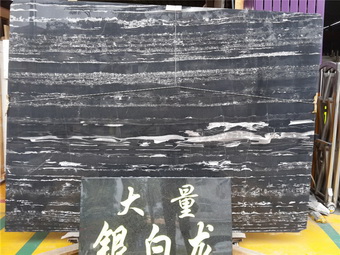 大量
银白龙